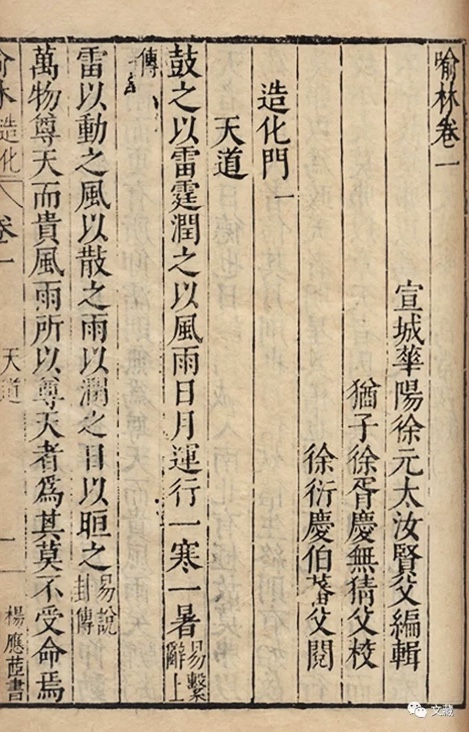 喻林卷一
宣城華陽徐元太汝賢父編輯
猶子徐胥慶無猜父校
徐衍慶伯蕃父閱
造化門一
天道
鼓之以雷霆潤之以風雨日月運行一寒一暑易繫辭上
傳
雷以動之風以散之雨以潤之日以晅之易說卦傳
萬物尊天而貴風雨所以尊天者爲其莫不受命焉
俞林 造化 卷一 天道 一 楊應 書
文藏